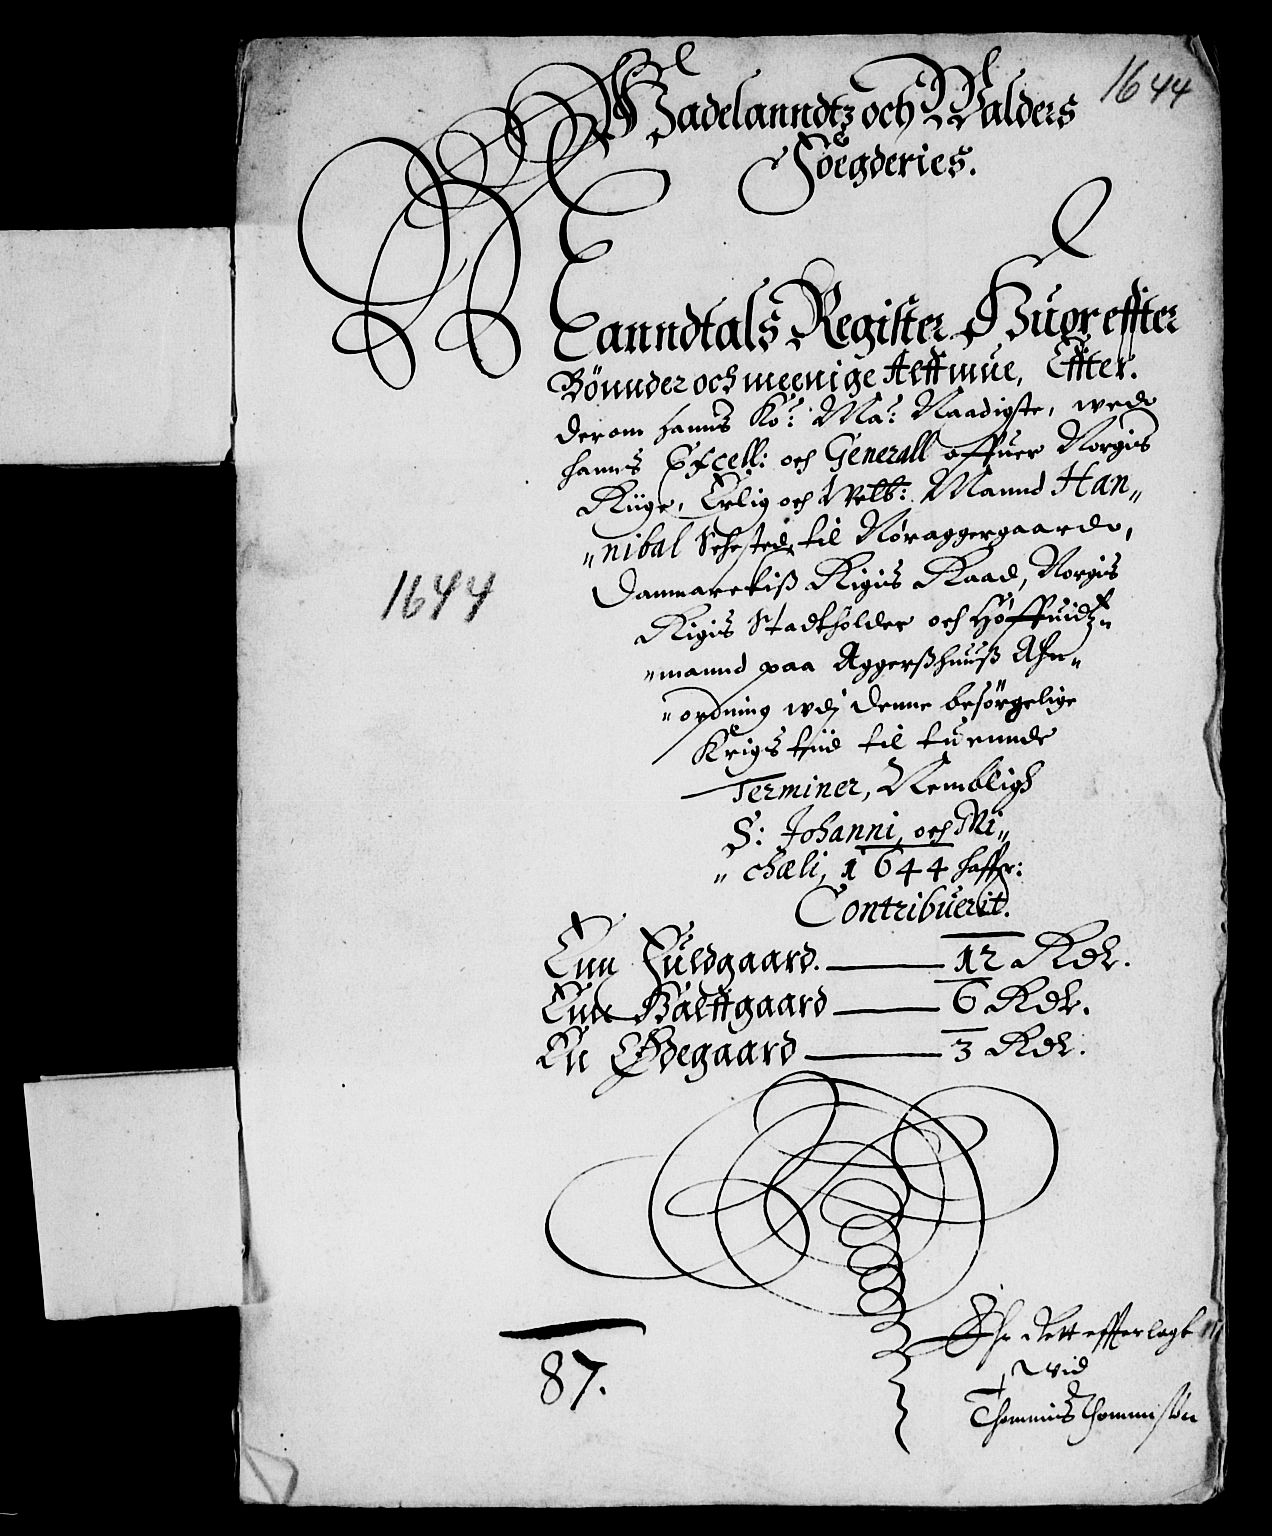 1644
Hadelanndtz och Walders
Foegderies.
Manndtals Register Huor effter
Bønnder och meenige Allmue, Effter.
derom hanns Ko: Ma: Naadigste, wed
hanns Excell: och Generall offuer Norgis
Riige, Erlig och Welb: Mannd Han„
„nibal Sehested, til Nøraggergaard,
Danmarckiß Rigis Raad, Norgis
Rigis Stadtholder och Høffuidtz„
„mannd paa Aggerßhuuß Ahn„
„ordning udj denne besörgelige
Krigs tiid til tuennde
Terminer, Nembligh
S: Johanni, och Mi„
„chæli, 1644 haffr:
Contribuerit.
1644
Enn Fuldgaard. — 12 Rdr.
Enn Halffgaard — 6 Rdr.
En Ødegaard — 3 Rdr.
87.
Rett effterlagt
wid
Thommis Thommissøn